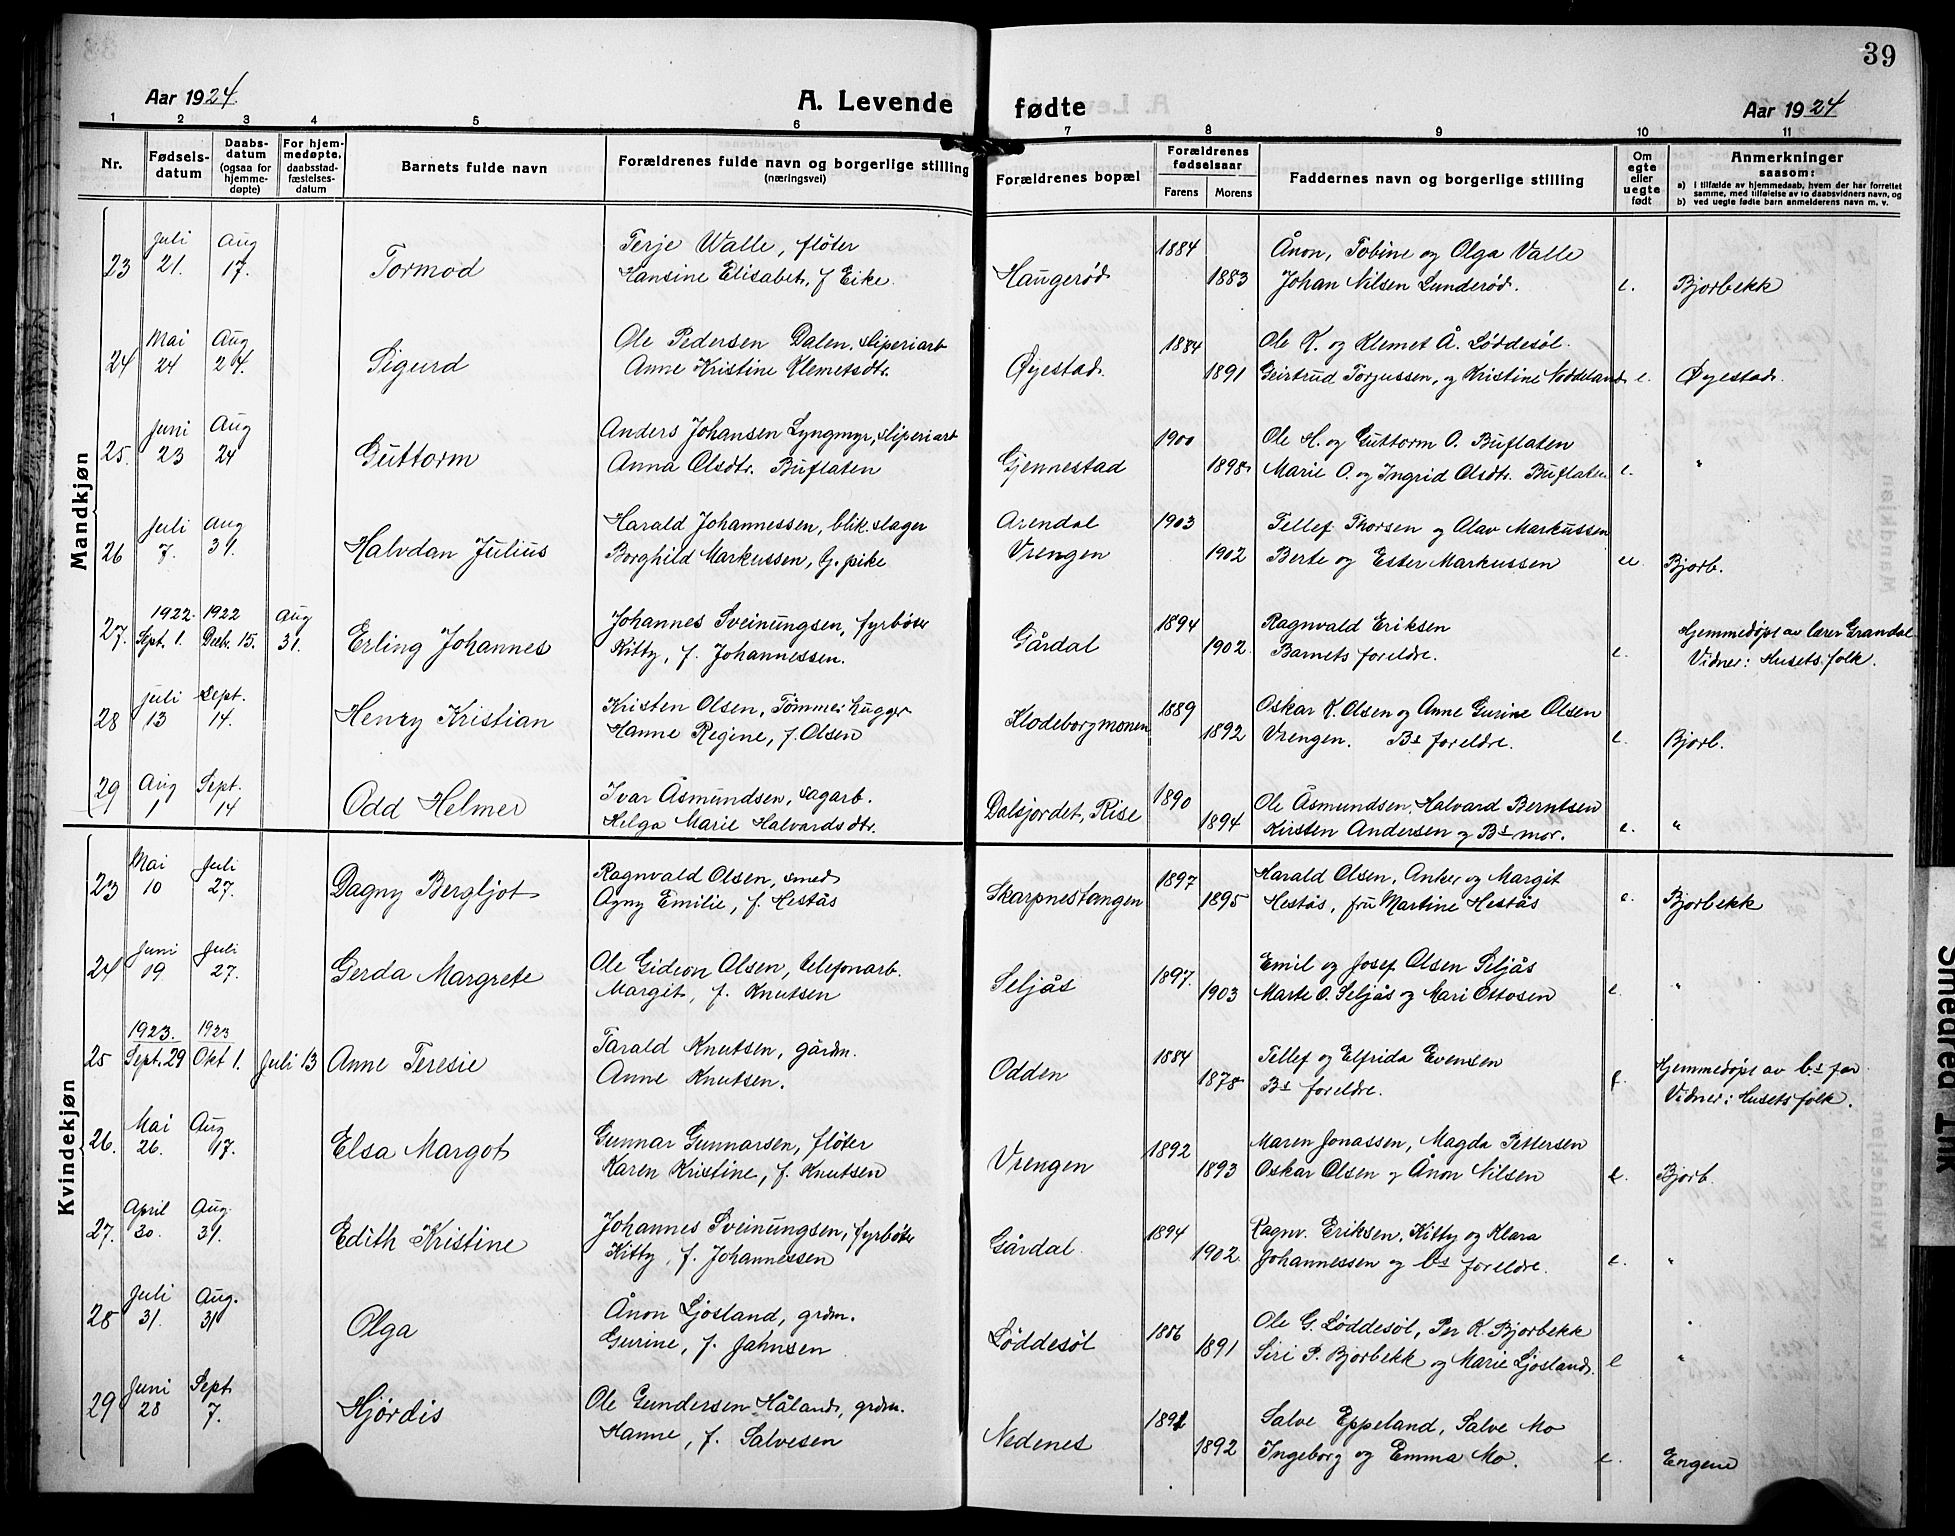 39
Aar 1924.
A. Levende fødte
Aar 1924
1 2 3 4 5 6 7 8 9 10 11
Nr.
Fødselsdatum
Daabsdatum (ogsaa for hjemmedøpte)
For hjemmedøpte, daabsstadfæstelsesdatum
Barnets fulde navn
Forældrenes fulde navn og borgerlige stilling (næringsvei)
Forældrenes bopæl
Forældrenes fødselsaar
Farens Morens
Faddernes navn og borgerlige stilling
Om egte eller uegte født
Anmerkninger saasom:
a) I tilfælde av hjemmedaab, hvem der har forrettet samme, med tilføielse av to daabsvidners navn, og
b) ved uegte fødte barn anmelderens navn m. v.
Mandkjøn
Juli Aug Terje Walle, fløter 1884 Ånon, Tobine og Olga Valle
23 21. 17. Tormod Hansine Elisabet, f Eike. Haugerød 1883 Johan Nilsen Lunderød. e. Bjorbekk
Mai Aug Ole Pedersen Dalen, sliperiarb 1884 Ole K. og Klemet Å. Løddesøl.
24 24 24. Sigurd Anne Kristine Klemetsdtr. Øyestad. 1891 Geirtrud Torjussen, og Kristine Nøddeland e. Øyestad.
Juni Aug Anders Johansen Lyngmyr, sliperiarb 1900 Ole H. og Guttorm O. Buflaten
25. 23 24 Guttorm Anna Olsdtr. Buflaten Gjennestad 1898 Marie O. og Ingrid Olsdtr. Buflaten e. "
Juli Aug Harald Johannessen, blik.slager Arendal 1903 Tellef Thorsen og Olav Markussen
26 7. 31. Halvdan Julius Borghild Markussen, tj. pike Vrengen 1902 Berte og Ester Markussen ue. Bjorb.
1922. 1922 Aug Johannes Sveinungsen, fyrbøter 1894 Ragnvald Eriksen Hjemmedøpt av lærer Grandal
27. Sept. 1. Decbr. 15. 31. Erling Johannes Kitty, f. Johannessen. Gårdal 1902. Barnets foreldre. e. Vidner: Husets folk.
Juli Sept. Kristen Olsen, Tømmerhugger 1889 Oskar K. Olsen og Anne Gurine Olsen
28 13 14. Henry Kristian Hanne Regine, f. Olsen Klodeborgmonen 1892 Vrengen. Bs foreldre. e. Bjorb.
Aug Sept. Ivar Åsmundsen, sagarb. 1890 Ole Åsmundsen, Halvard Berntsen
29 1 14 Odd Helmer Helga Marie Halvardsdtr. Dalsjordet, Rise 1894 Kirsten Andersen og Bs mor. e. "
Kvindekjøn
Mai Juli Ragnvald Olsen, smed 1897 Harald Olsen, Anker og Margit
23 10 27. Dagny Bergljot Agny Emilie, f. Hestås Skarpnestangen 1895 Hestås, fru Martine Hestås e. Bjorbekk
Juni Juli Ole Gideon Olsen, telefonarb. 1897. Emil og Josef Olsen Seljås
24 19 27. Gerda Margrete Margit, f. Knutsen Seljås 1903 Marte O. Seljås og Mari Ottosen e. "
1923. 1923 Tarald Knutsen, gårdm. 1884 Tellef og Elfrida Evensen Hjemmedøpt av bs far
25 Sept. 29 Okt 1. Juli 13 Anne Teresie Anne Knutsen. Odden 1878 Bs foreldre. Vidner: Husets folk.
Mai Aug Gunnar Gunnarsen, fløter 1892 Maren Jonassen, Magda Pettersen
26. 26. 17. Elsa Margot Karen Kristine, f. Knutsen Vrengen 1893 Oskar Olsen og Ånon Nilsen e. Bjorb.
April Aug. Johannes Sveinungsen, fyrbøter 1894 Ragnv. Eriksen, Kitty og Klara
27. 30. 31. Edith Kristine Kitty, f. Johannessen Gårdal. 1902. Johannessen og bs foreldre. e. "
Juli Aug. Ånon Ljosland, grdm. 1886 Ole G. Løddesøl, Per K. Bjorbekk "
28 31. 31 Olga Gurine, f. Jahnsen Løddesøl 1891 Siri P. Bjorbekk og Marie Ljosland. e "
Juni Sept Ole Gundersen Håland, grdm. 1891 Salve Eppeland, Salve Mo
29 28 7. Hjørdis Hanne, f. Salvesen Nedenes 1892 Ingeborg og Emma Mo. e. Engene
Smedrød Ink